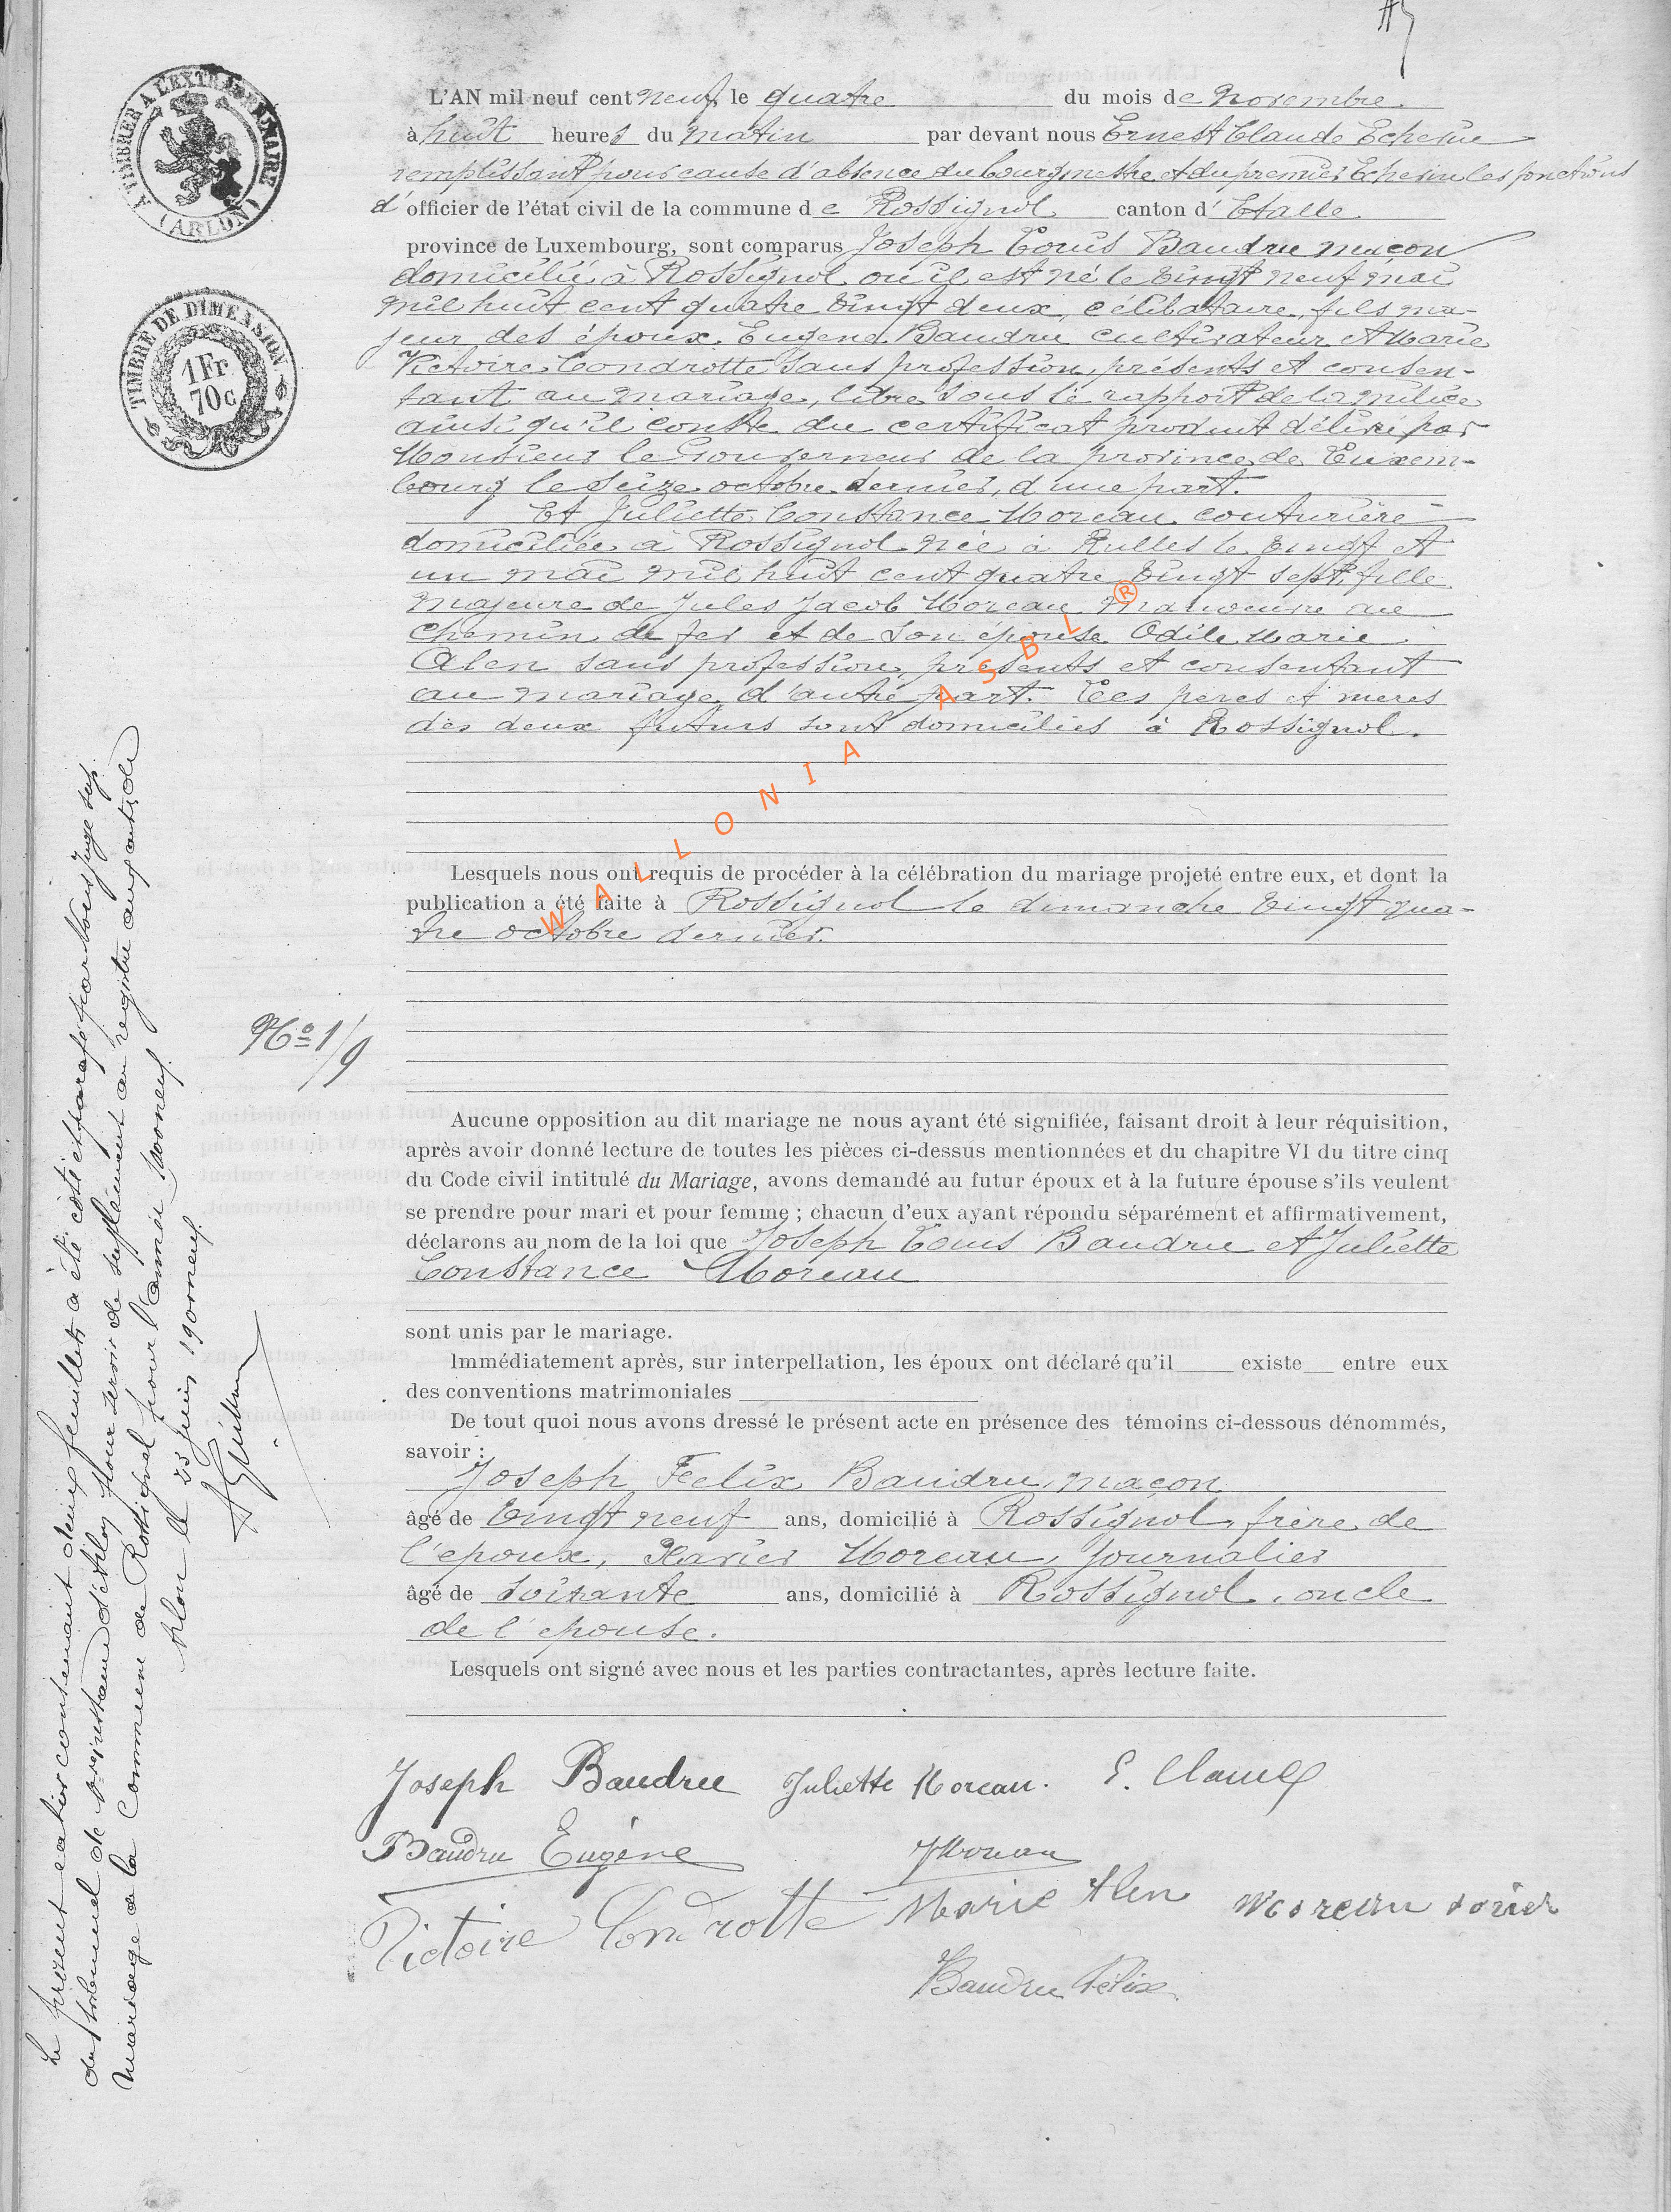 A TIMBRER A L'EXTRAORDINAIRE
(ARLON)
TIMBRE DE DIMENSION
1Fr
70c
L'AN mil neuf cent neuf, le quatre du mois de Novembre
à huit heures du matin par devant nous Ernest Claude Echevin
remplissant pour cause d'absence du bourgmestre et du premier Echevin les fonctions
d'officier de l'état civil de la commune de Rossignol canton d'Etalle
province de Luxembourg, sont comparus Joseph Louis Baudru maçon
domicilié à Rossignol où il est né le vingt neuf mai
mil huit cent quatre vingt deux, célibataire, fils ma-
jeur des époux Eugène Baudru cultivateur et Marie
Victoire Condrotte sans profession, présents et consen-
tant au mariage, libre sous le rapport de la milice
ainsi qu'il conste du certificat produit délivré par
Monsieur le Gouverneur de la province de Luxem-
bourg le seize octobre dernier, d'une part.
Et Juliette Constance Moreau couturière
domiciliée à Rossignol née à Rulles le vingt et
un mai mil huit cent quatre vingt sept fille
majeure de Jules Jacob Moreau manoeuvre au
chemin de fer et de son épouse Odile Marie
Alen sans profession, présents et consentant
au mariage d'autre part. Les pères et mères
des deux futurs sont domiciliés à Rossignol.
WALLONIA ASBL ®
Lesquels nous ont requis de procéder à la célébration du mariage projeté entre eux, et dont la
publication a été faite à Rossignol le dimanche vingt qua-
tre octobre dernier.
No 1/9
Aucune opposition au dit mariage ne nous ayant été signifiée, faisant droit à leur réquisition,
après avoir donné lecture de toutes les pièces ci-dessus mentionnées et du chapitre VI du titre cinq
du Code civil intitulé du Mariage, avons demandé au futur époux et à la future épouse s'ils veulent
se prendre pour mari et pour femme ; chacun d'eux ayant répondu séparément et affirmativement,
déclarons au nom de la loi que Joseph Louis Baudru et Juliette
Constance Moreau
sont unis par le mariage.
Immédiatement après, sur interpellation, les époux ont déclaré qu'il existe entre eux
des conventions matrimoniales
De tout quoi nous avons dressé le présent acte en présence des témoins ci-dessous dénommés,
savoir :
Joseph Felix Baudru, maçon
âgé de vingt neuf ans, domicilié à Rossignol, frère de
l'époux, Xavier Moreau, journalier
âgé de soixante ans, domicilié à Rossignol, oncle
de l'épouse.
Lesquels ont signé avec nous et les parties contractantes, après lecture faite.
Joseph Baudru Juliette Moreau. E. Claude
Baudru Eugène JMoreau
Victoire Condrotte Marie Alen Moreau Xavier
Baudru Félix
Le présent cahier contenant deux feuillets a été coté et parafé par Nous Juge sup.
du tribunal de 1re instance d'Arlon pour servir de supplément au registre aux actes de
mariage de la commune de Rossignol pour l'année 1900neuf.
Arlon le 23 juin 1900neuf.